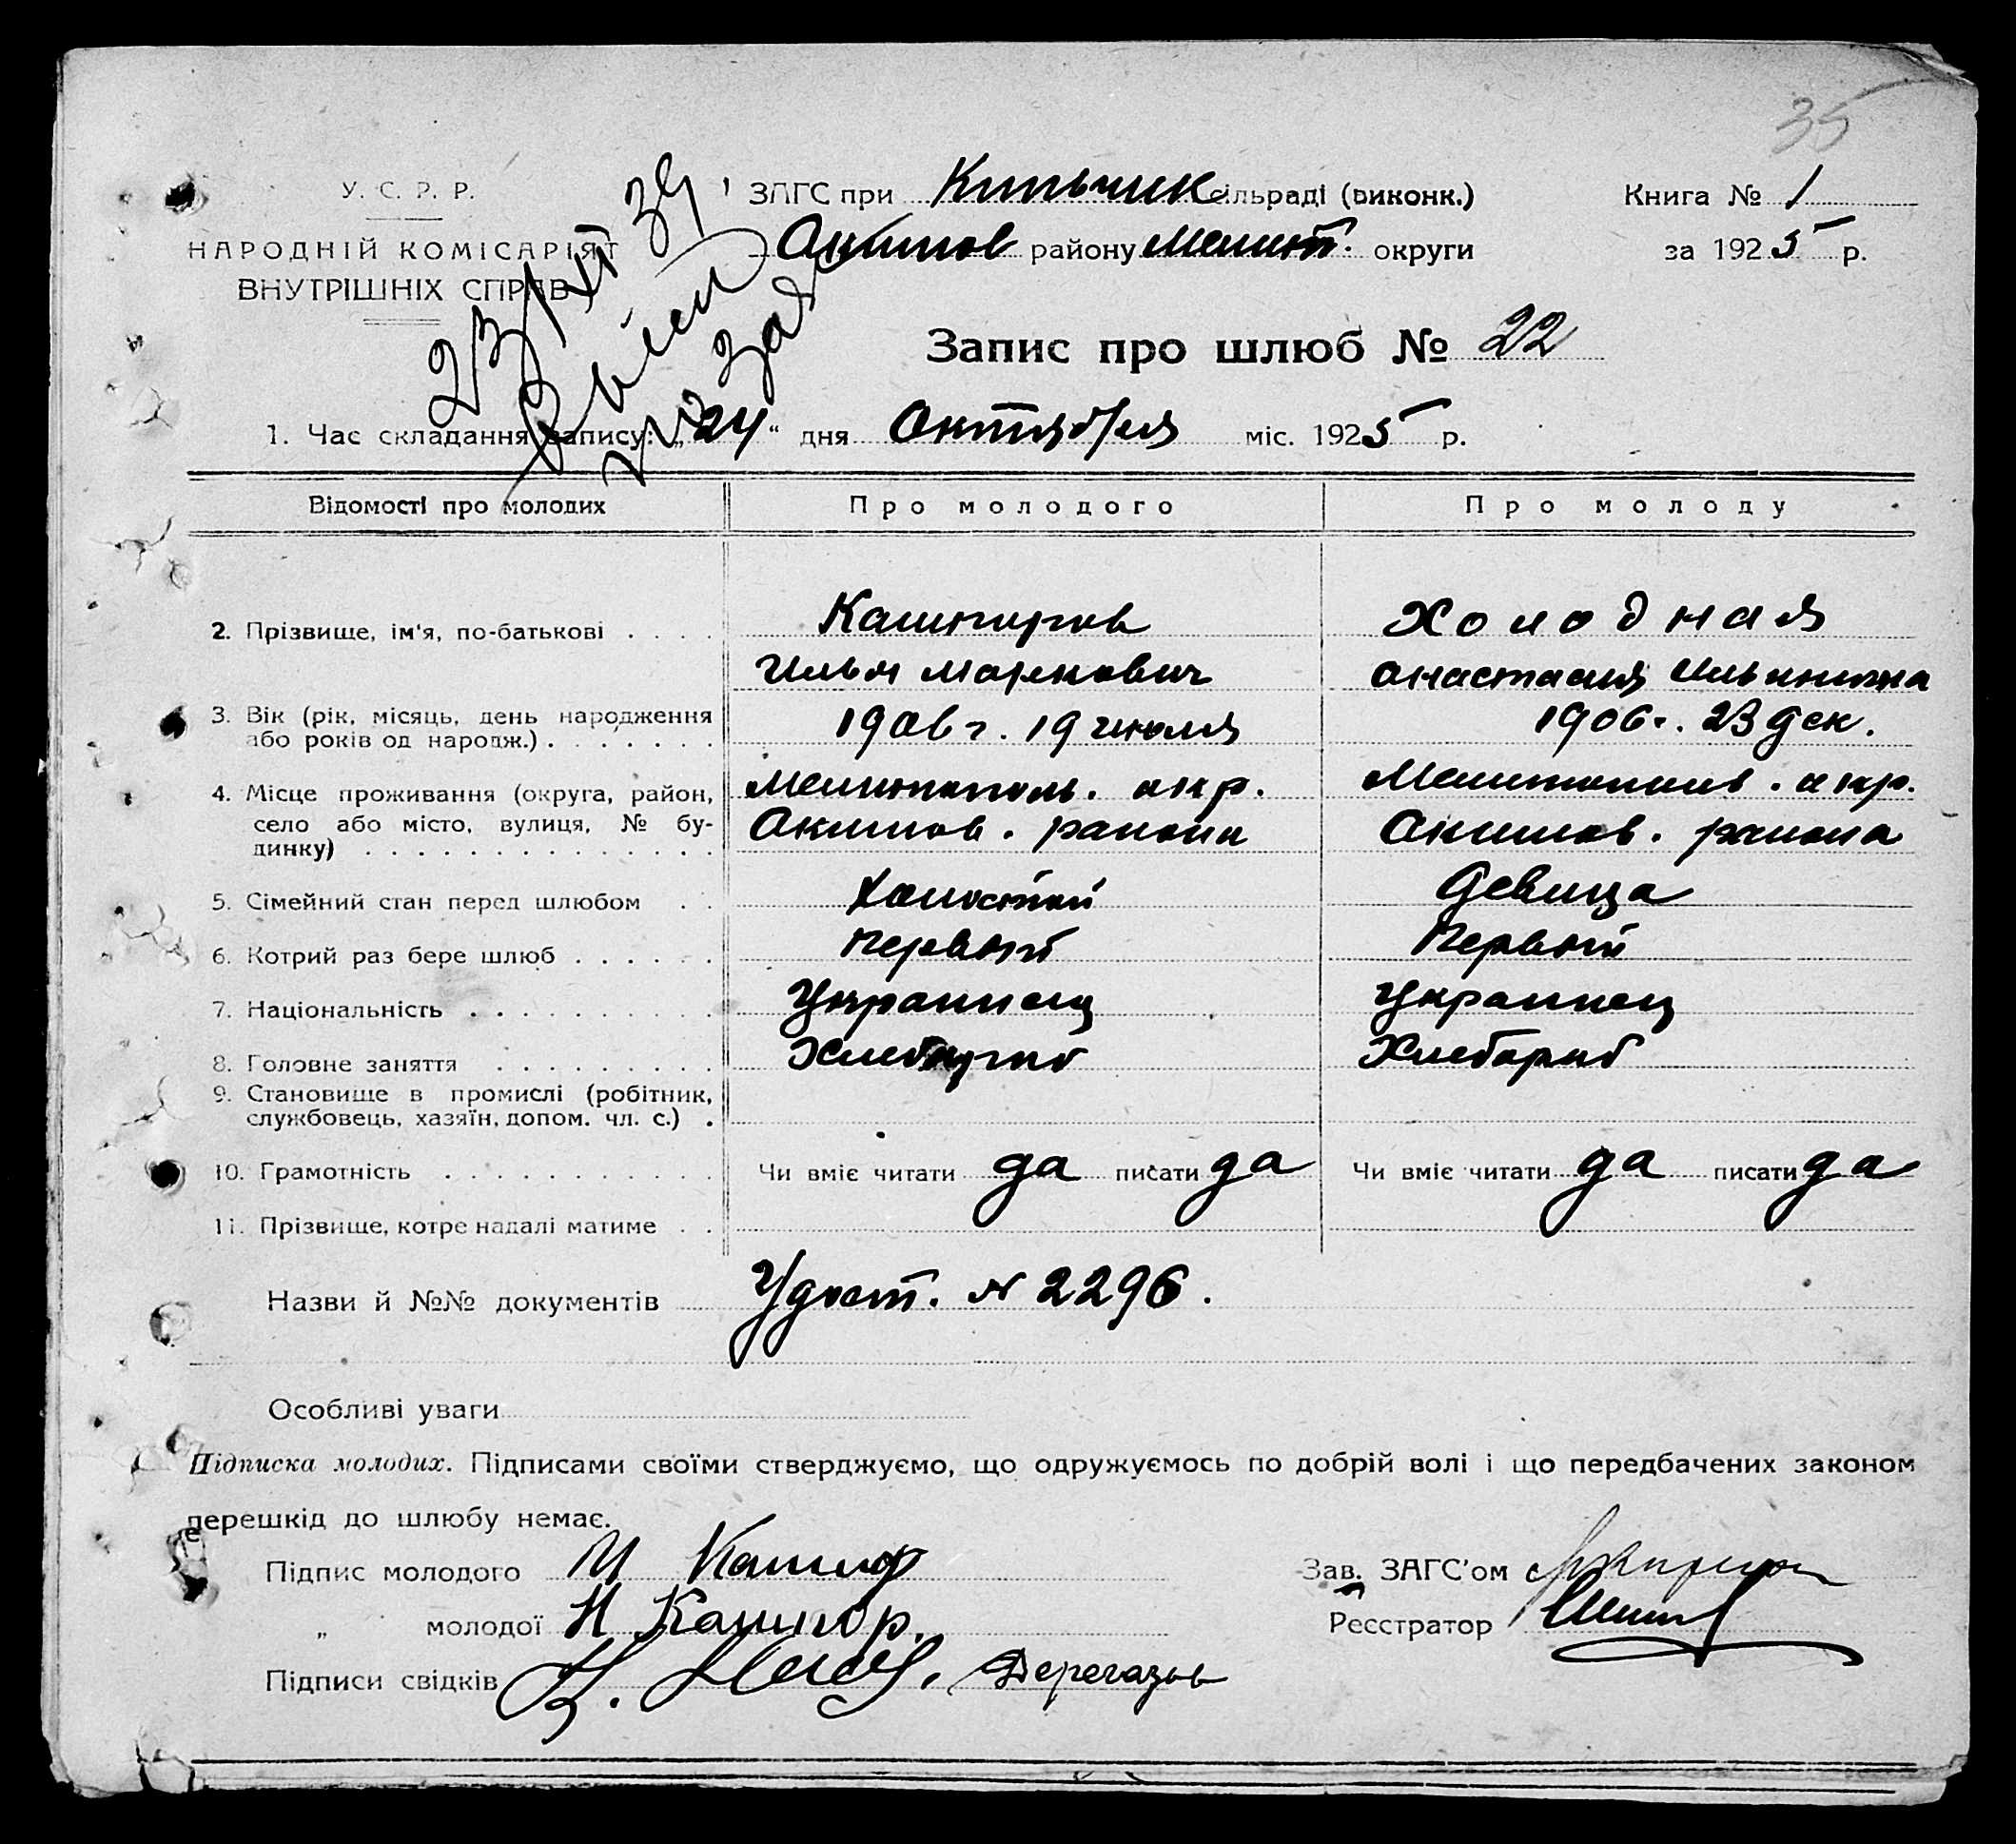 35
У. С. Р. Р.
НАРОДНІЙ КОМІСАРІЯТ
ВНУТРІШНІХ СПРАВ
ЗАГС при Кильчик сільраді (виконк.)
Акимов району Мелит. округи
Книга № 1
за 1925 р.
23/XII 39
Запис про шлюб № 22
1. Час складання запису: „24“ дня Октября міс. 1925 р.
Відомості про молодих Про молодого Про молоду
2. Прізвище, ім'я, по-батькові . . . . Кашпоров Холодная
Илья Маркович Анастасия Ильинична
3. Вік (рік, місяць, день народження або років од народж.) . . . . . . . 1906 г. 19 июля 1906 г. 23 дек.
4. Місце проживання (округа, район, Мелитополь. окр. Мелитопол. окр.
село або місто, вулиця, № бу- Акимов. района Акимов. района
динку) . . . . . . . . . . . . . . .
5. Сімейний стан перед шлюбом . . Холостой Девица
6. Котрий раз бере шлюб . . . . . . Первый Первый
7. Національність . . . . . . . . . . Украинец Украинец
8. Головне заняття . . . . . . . . . Хлебороб Хлебороб
9. Становище в промислі (робітник,
службовець, хазяїн, допом. чл. с.) .
10. Грамотність . . . . . . . . . . . Чи вміє читати да писати да Чи вміє читати да писати да
11. Прізвище, котре надалі матиме . .
Назви й №№ документів Удост. № 2296.
Особливі уваги
Підписка молодих. Підписами своїми стверджуємо, що одружуємось по добрій волі і що передбачених законом
перешкід до шлюбу немає.
Підпис молодого И Кашпор
Зав. ЗАГС'ом
„ молодої Н Кашпор.
Реєстратор
Підписи свідків